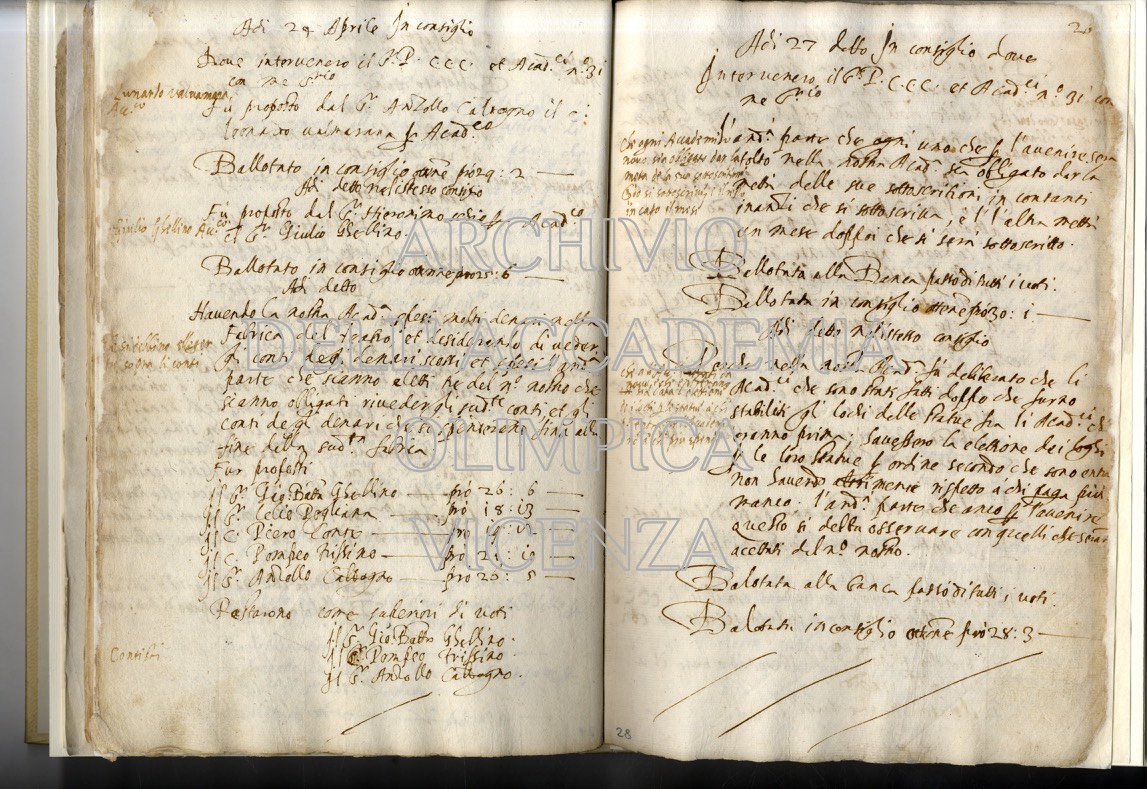 Adi 24 Aprile In consiglio
Dove intervenero il S.r P. C.C.C. et Acad.ci n.o 31
con me S.rio
Lunardo valmarana
Ac.co
Fù proposto dal S.r Anzollo Caldogno il C:
leonardo valmarana p Acad.co
Ballotato in consiglio ottenne prò 29: 2
Adi detto nel istesso consiglio
Fù proposto dal S.r Hieronimo p Acad.co
Giulio Ghellino Ac.co
il S.r Giulio Ghellino.
Ballotato in consiglio ottenne pro 25: 6
Adi detto
Havendo la nostra Acad.a spesi molti denari nella
Fabrica del Teatro et desiderando di veder
sopra li conti
gli conti degli denari scossi et spesi l'andrà
parte che sianno eletti tre del n.o nostro che
sianno obligati riveder gli sud.ti conti et gli
conti degli denari che si spenderano fina alla
fine della sud.ta fabrica
Fur proposti
Il S.r Gio Batta Ghellino prò 26: 6
Il S.r Lelio Pogliana prò 18: 13
Il C. Piero Conte prò
Il C. Pompeo Trissino prò 21: 10
Il S.r Anzollo Caldogno prò 20: 5
Restarono come superiori di voti
Il S.r Gio Batta Ghellino.
Contisti
Il C. Pompeo Trissino.
Il S.r Anzollo Caldogno.
28
20
Adi 27 detto In consiglio dove
Intervenero il S.r P. C.C.C. et Acad.ci n.o 31 con
me S.rio
che ogni Academico
novo sia obligato dar la
metà
in capo il mese
L'andrà parte che ogni uno che p l'avenire sera
tolto nella nostra Acad.a sia obligato dar la
metà delle sue sottoscritioni in contanti
inanti che si sottoscriva, e l'altra mettà
un mese doppoi che si serà sottoscritto.
Ballotata alla Banca passò di tutti i voti.
Ballotata in consiglio ottenne prò 30: 1
Adi detto nel istesso consiglio
nella nostra Acad.a fù deliberato che li
Acad.ci che sono stati fatti doppo che furno
stabiliti gli lochi delle statue fra li Acad.ci ch'
eranno prima, havessero la elettione dei loghi
p le loro statue p ordine secondo che sono entrati
non havendo altrimente rispetto à chi paga più ò
manco. l'andrà parte che anco p l'avenire
questo si debba osservare con quelli che seran
acettati del n.o nostro.
Balotata alla banca passò di tutti i voti.
Balotata in consiglio ottenne prò 28: 3
ARCHIVIO
DELL'ACCADEMIA
OLIMPICA
VICENZA